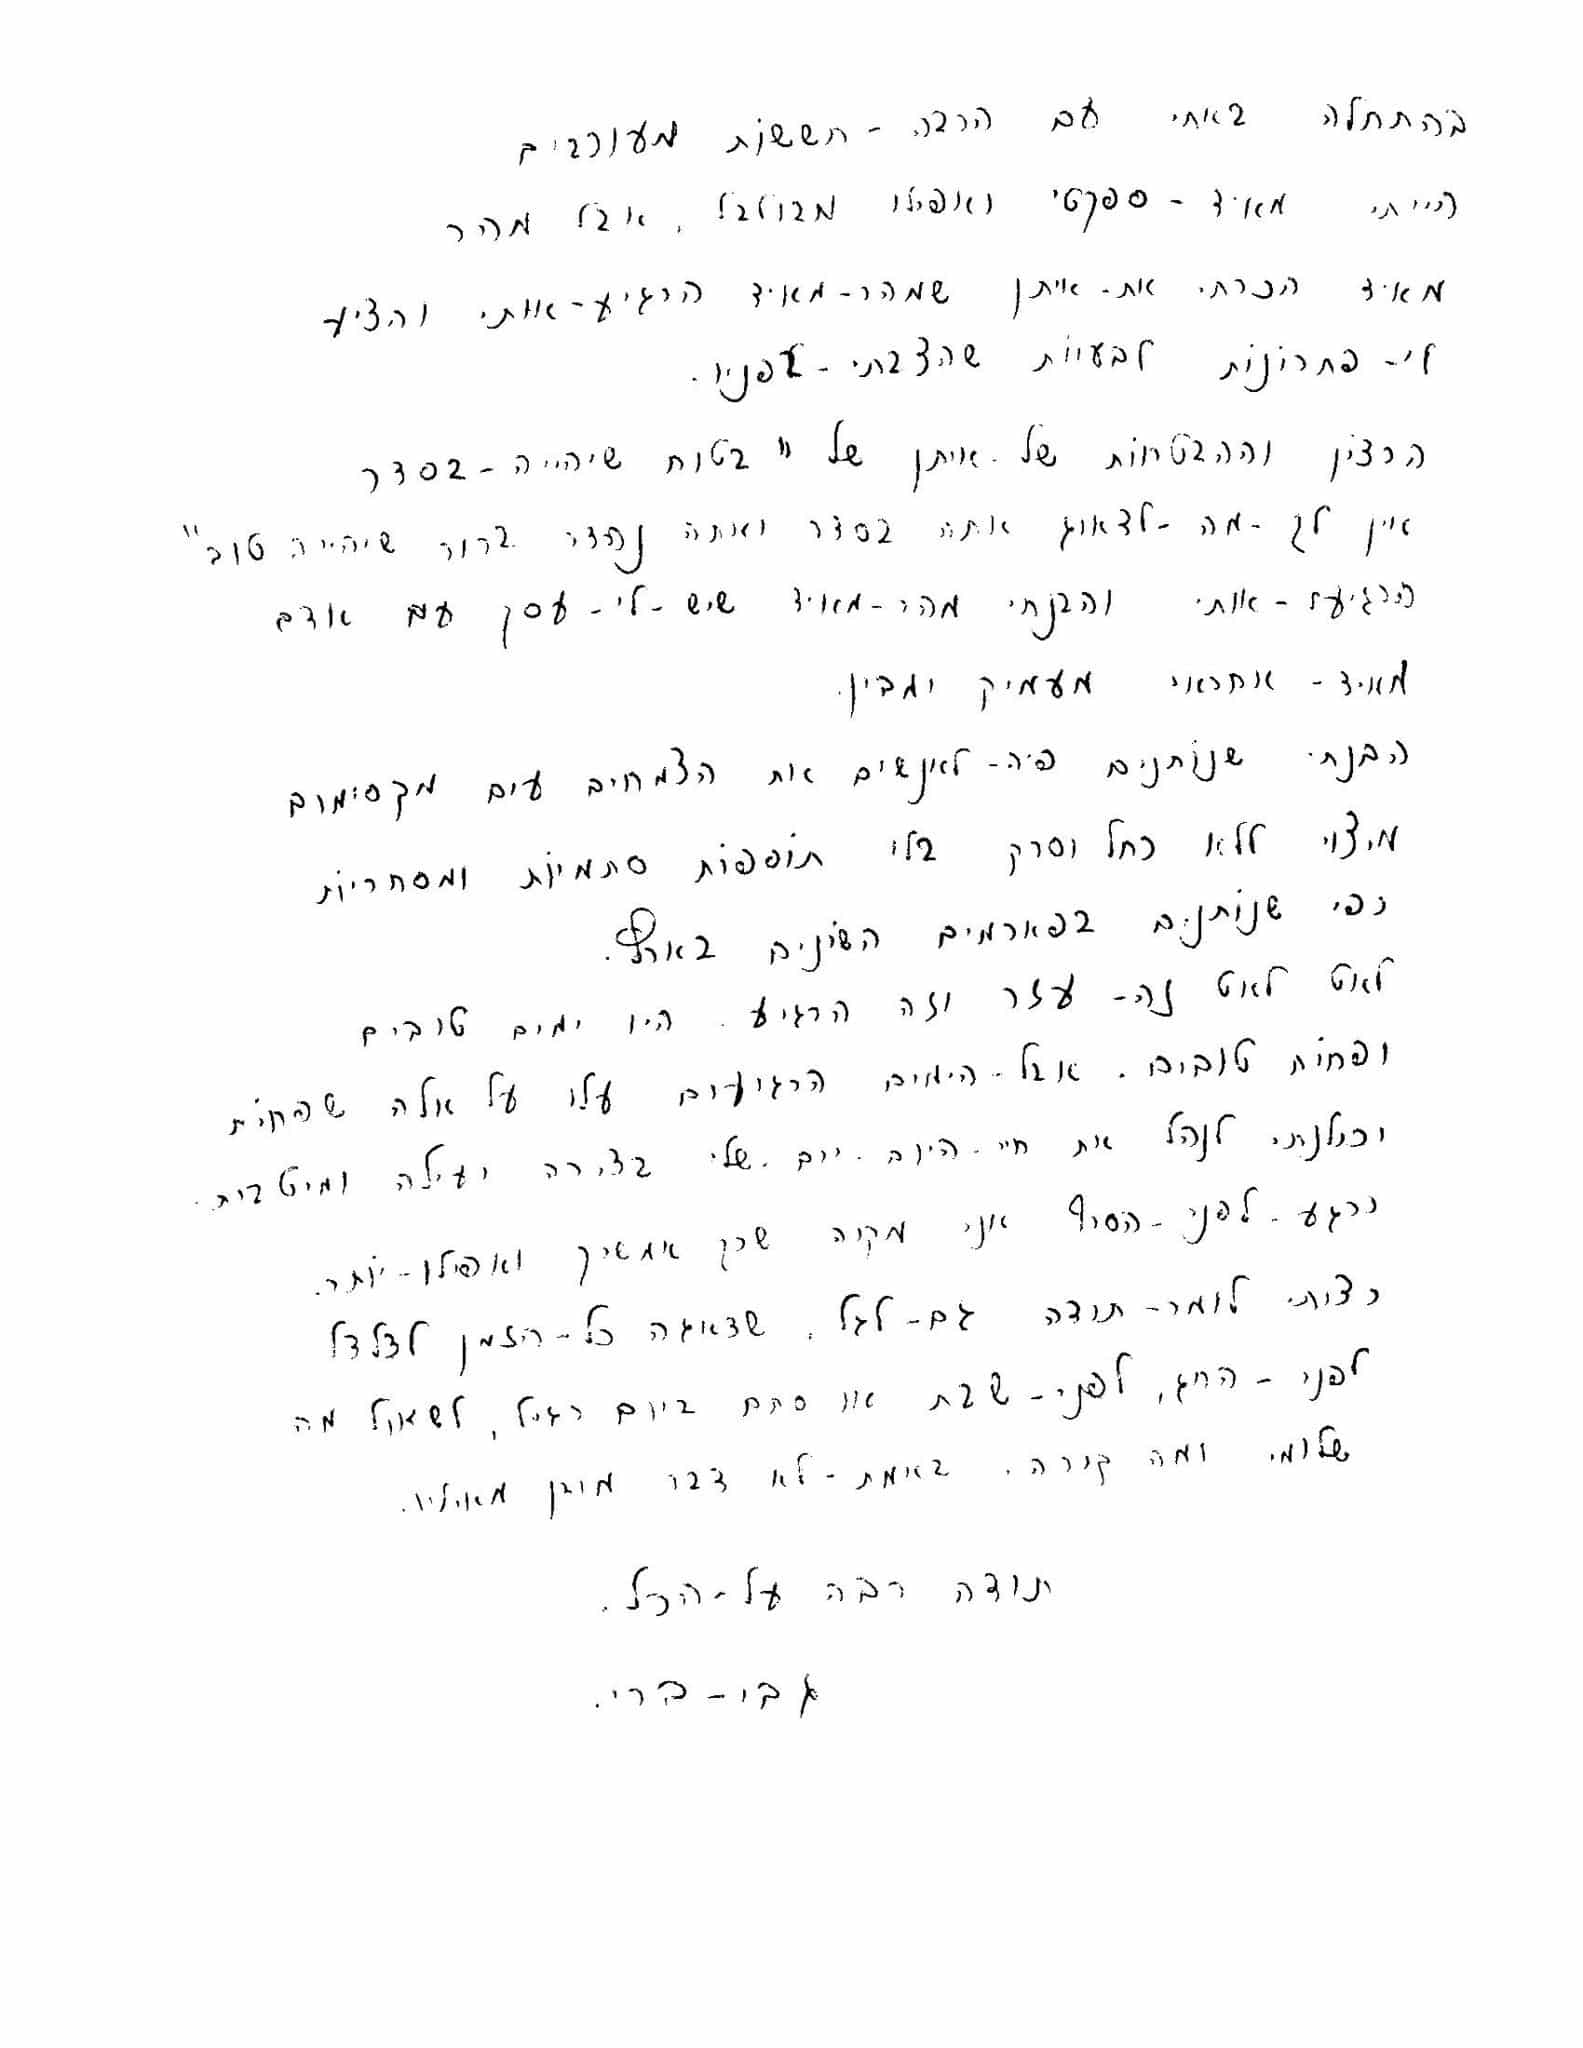 בהתחלה באתי עם הרבה - חששות מעורבים
הייתי מאוד - ספקטי ואפילו מבולבל, אבל מהר
מאוד הכרתי את - איתן שמהר - מאוד הרגיע - אותי והציע
לי - פתרונות לבעיות שהצבתי - לפניו.
הרצון וההבטחות של - איתן של " בטוח שיהייה - בסדר
אין לך - מה - לדאוג אתה בסדר ואתה נהדר ברור שיהייה טוב"
הרגיעו - אותי והבנתי מהר - מאוד שיש - לי - עסק עם אדם
מאוד - אחראי מעמיק ומבין.
הבנתי שנותנים פה - לאנשים את הצמחים עים מקסימום
מיצוי ללא כחל וסרק בלי תוספות סתמיות ומסחריות
כפי שנותנים בפארמים השונים בארץ.
לאט לאט זה - עזר וזה הרגיע. היו ימים טובים
ופחות טובים. אבל - הימים הרגועים עלו על אלה שפחות
ויכולתי לנהל את חיי - היום - יום - שלי בצורה יעילה ומיטבית.
כרגע - לפני - הסוף אני מקוה שרק אמשיך ואפילו - יותר.
רציתי לומר - תודה גם - לגל, שדאגה כל - הזמן לצלצל
לפני - החג, לפני - שבת או סתם ביום רגיל, לשאול מה
שלומי ומה קורה. באמת - לא דבר מובן מאיליו.
תודה רבה על - הכל.
גבי - פרי.